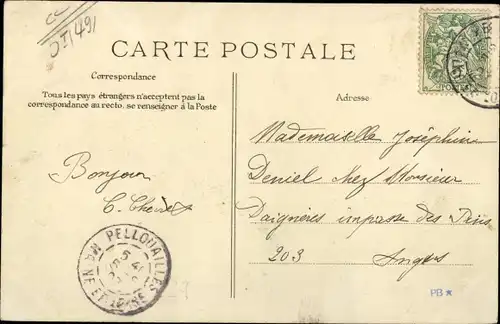 CARTE POSTALE
Correspondance
Tous les pays étrangers n'acceptent pas la
correspondance au recto, se renseigner à la Poste
Adresse
Bonjour
C.
Mademoiselle Joséphine
Deniel chez Monsieur
Daignères impasse des
203
Angers
PELLOUAILLES
MNE ET LOIRE
PB*